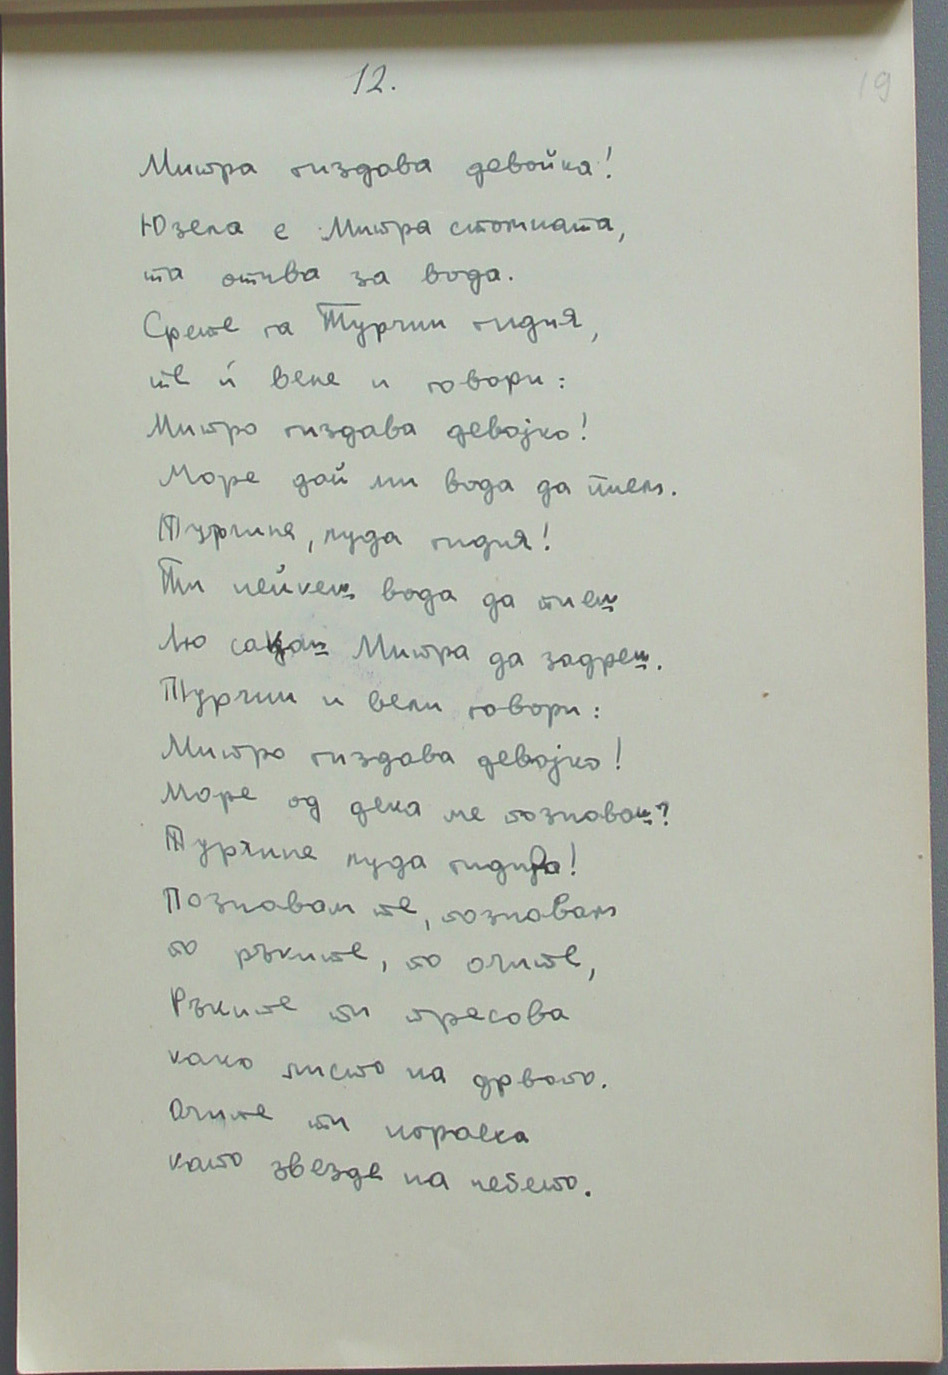 12.
19
Митра гиздава девойка!
Юзела е Митра стомната,
та отива за вода.
Срете га Турчин гидия,
те ѝ веле и говори:
Митро гиздава девојко!
Море дай ми вода да пием.
Турчине, луда гидия!
Ти нейкеш вода да пиеш
Лю сакаш Митра да задреш.
Турчин и вели говори:
Митро гиздава девојко!
Море од дека ме познаваш?
Турчине луда гидиво!
Познавам те, познавам
по ръките, по очите,
Ръките ти тресова
како листо на дрвото.
Очите ти
като звезде на небето.